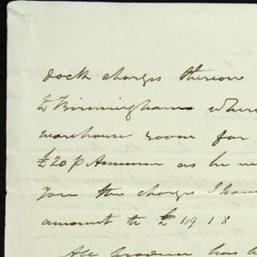 dock charges thereon
to Birmingham where
warehouse room for
£20 p Annum as he
you the charges I have
amount to £ 49 1 8
has